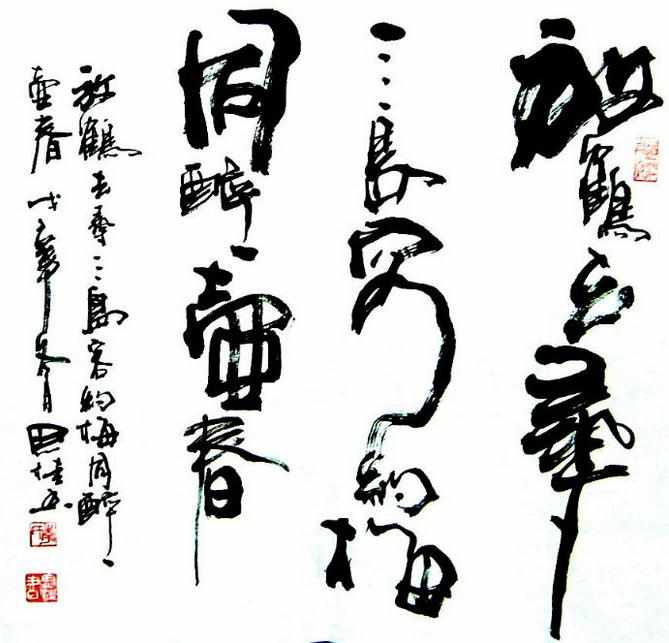 放鶴去尋
三島客約梅
同醉一壺春
放鶴去尋三島客約梅同醉一
壺春 戊子年冬月